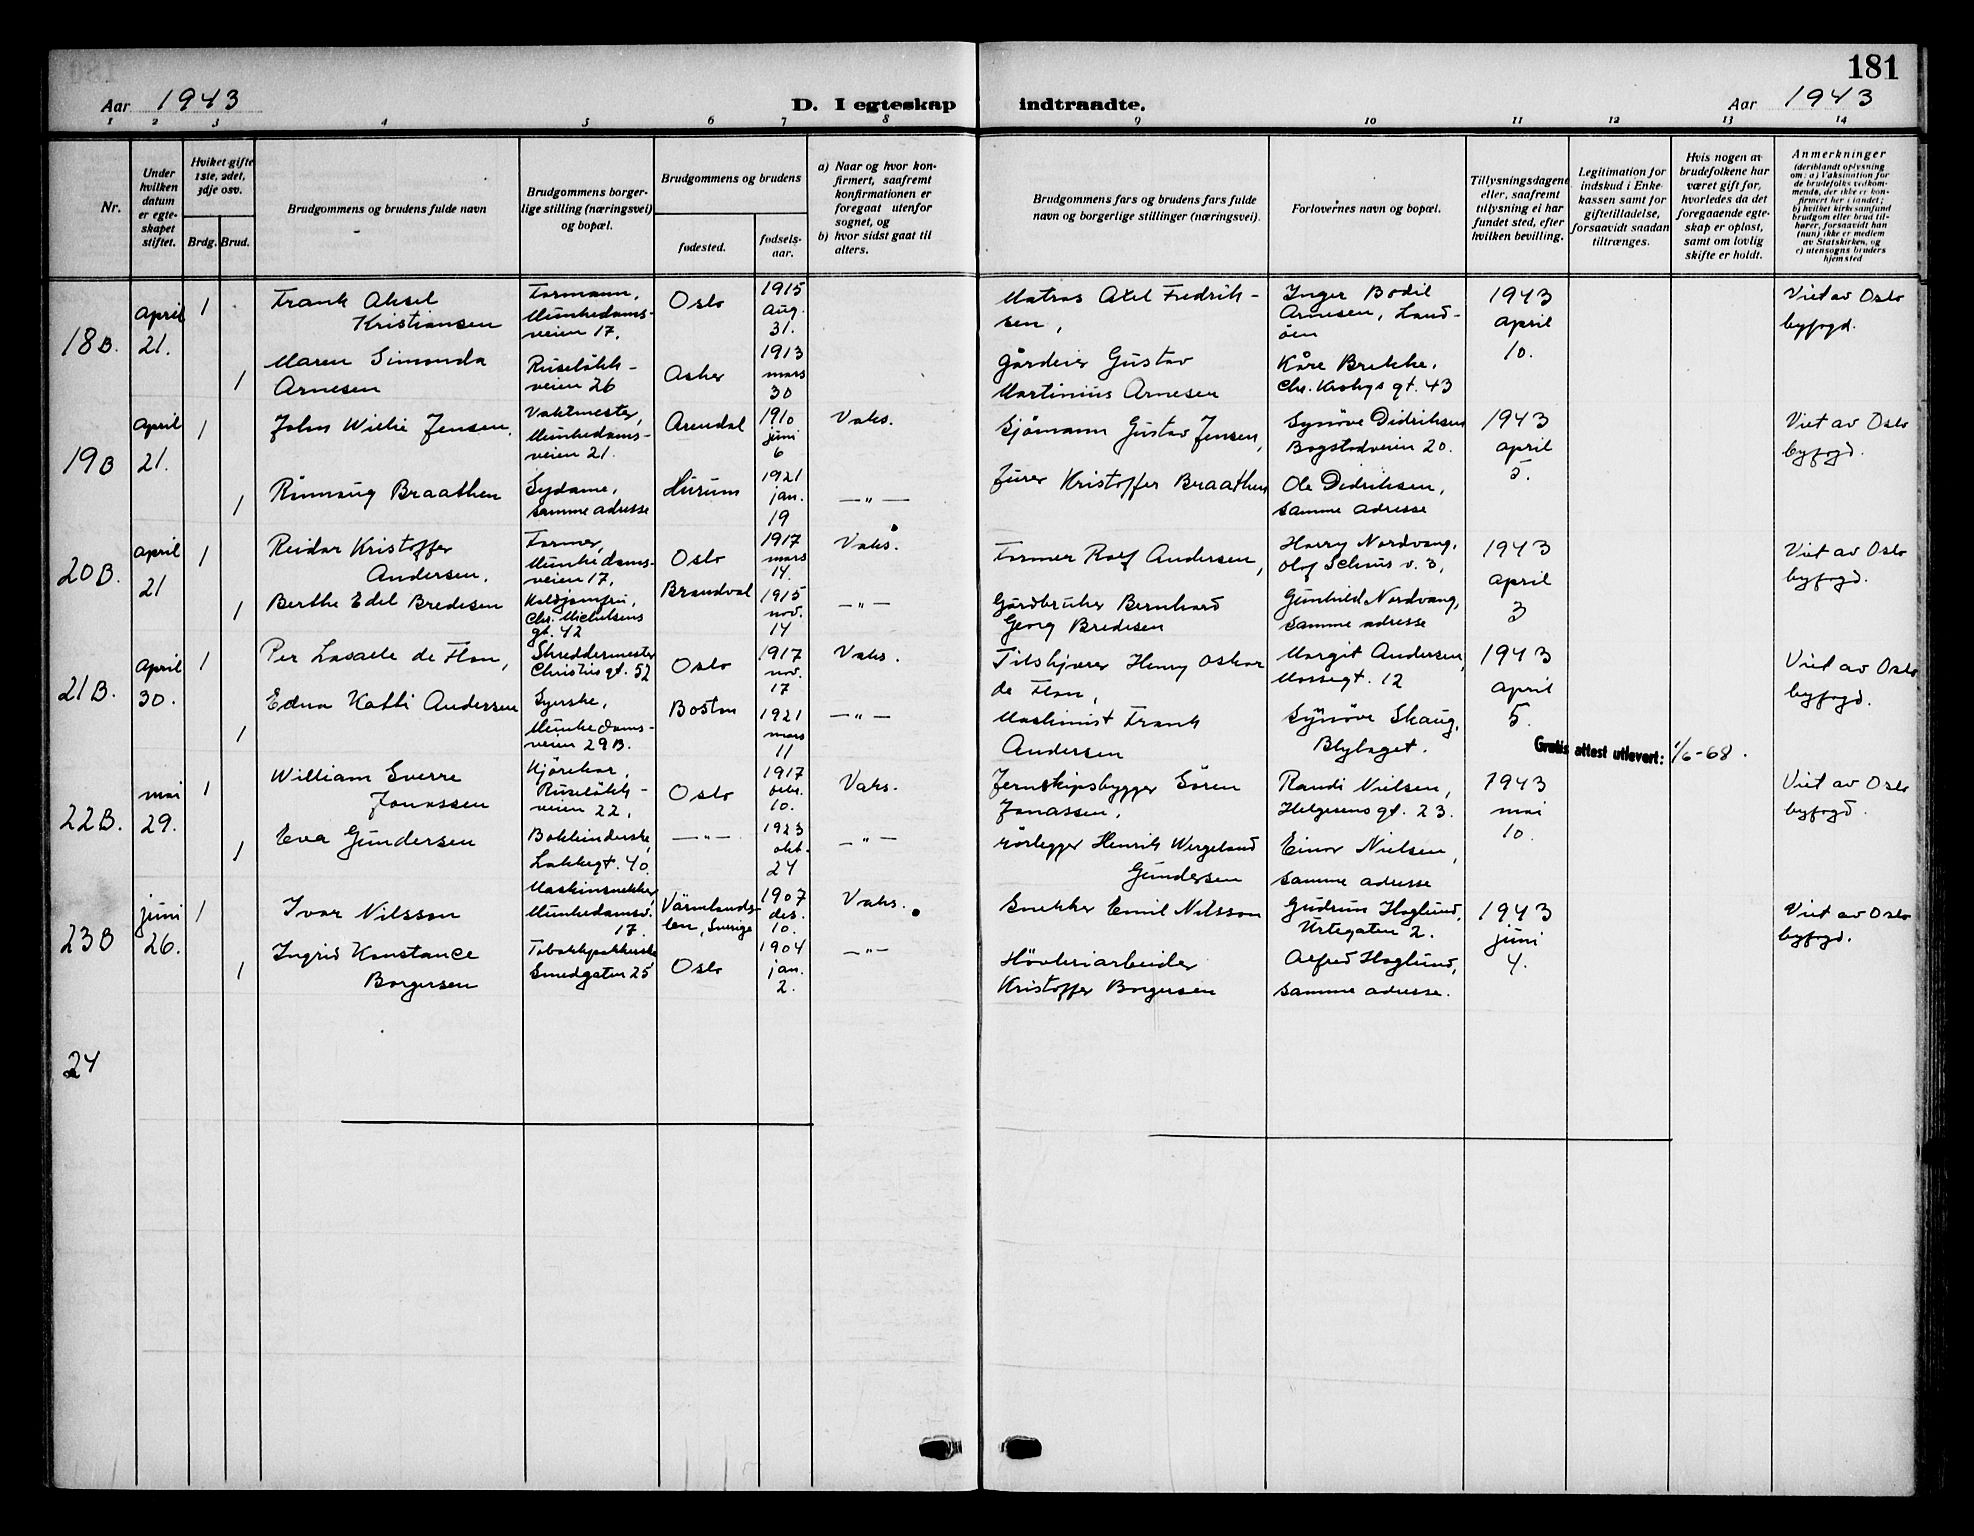 181
Aar 1943
D. I egteskap indtraadte.
Aar 1943
1 2 3 4 5 6 7 8 9 10 11 12 13 14
Nr.
Under hvilken datum er egteskapet stiftet.
Hvilket gifte 1ste, 2det, 3dje osv.
Brdg. Brud.
Brudgommens og brudens fulde navn
Brudgommens borgerlige stilling (næringsvei) og bopæl.
Brudgommens og brudens
fødested.
fødselsaar.
a) Naar og hvor konfirmert, saafremt konfirmationen er foregaat utenfor sognet, og
b) hvor sidst gaat til alters.
Brudgommens fars og brudens fars fulde navn og borgerlige stillinger (næringsvei).
Forlovernes navn og bopæl.
Tillysningsdagene eller, saafremt tillysning ei har fundet sted, efter hvilken bevilling.
Legitimation for indskud i Enkekassen samt for giftetilladelse, forsaavidt saadan tiltrænges.
Hvis nogen av brudefolkene har været gift før, hvorledes da det foregaaende egteskap er opløst, samt om lovlig skifte er holdt.
Anmerkninger
(deriblandt oplysning om: a) Vaksination for de brudefolks vedkommende, der ikke er konfirmert her i landet; b) hvilket kirkesamfund brudgom eller brud tilhører, forsaavidt han (hun) ikke er medlem av Statskirken, og c) utensogns bruders hjemsted
18B.
april 21.
1
Frank Aksel Kristiansen
Formann, Munkedamsveien 17.
Oslo
1915 aug. 31.
Matros Axel Fredriksen,
Inger Bodil Arnesen, Landöen
1943 april 10.
Viet av Oslo byfogd.
1
Maren Simonda Arnesen
Ruselökkveien 26
Asker
1913 mars 30
Gårdeier Gustav Martinius Arnesen
Kåre Brekke, Chr. Krohgs gt. 43
19B
april 21.
1
John Willie Jensen,
Vaktmester, Munkedamsveien 21.
Arendal
1910 juni 6
Vaks.
Sjömann Gustav Jensen,
Synöve Didriksen Bogstadveien 20.
1943 april 5.
Viet av Oslo byfogd.
1
Rannaug Braathen
Sydame, samme adresse
Hurum
1921 jan. 19
—"—
Furer Kristoffer Braathen
Ole Didriksen, samme adresse
20B.
april 21
1
Reidar Kristoffer Andersen,
Former, Munkedamsveien 17,
Oslo
1917 mars 14.
Vaks.
Former Rolf Andersen,
Harry Nordvang, Olof Schous v. 3,
1943 april 3
Viet av Oslo byfogd.
1
Berthe Edel Bredesen
Koldjomfru, Chr. Michelsens gt. 42
Brandval
1915 nov. 14
—"—
Gårdbruker Bernhard Georg Bredesen
Gunhild Nordvang, samme adresse
21B.
april 30.
1
Per Lasalle de Flon,
Skreddermester Christies gt. 52
Oslo
1917 nov. 17
Vaks.
Tilskjærer Henry Oskar de Flon,
Margit Andersen, Mossegt. 12
1943 april 5.
Viet av Oslo byfogd.
1
Edna Katti Andersen
Syerske, Munkedamsveien 29B.
Boston
1921 mars 11
—"—
Maskinist Frank Andersen
Synöve Skaug, Blylaget.
Gratis attest utlevert: 1/6-68.
22B.
mai 29.
1
William Sverre Jonassen
Kjörekar, Ruselökkveien 22,
Oslo
1917 febr. 10.
Vaks.
Jernskipsbygger Sören Jonassen,
Randi Nielsen, Helgesens gt. 23.
1943 mai 10.
Viet av Oslo byfogd.
1
Eva Gundersen
Bokbinderske, Lakkegt. 40
—"—
1923 okt. 24
—"—
rörlegger Henrik Wergeland Gundersen
Einar Nielsen, samme adresse
23B
juni 26.
1
Ivar Nilsson
Maskinsnekker, Munkedamsv. 17.
Värmlandsbro, Sverige
1907 des. 10.
Vaks.
Snekker Emil Nilsson
Gudrun Hoglund, Urtegaten 2.
1943 juni 4.
Viet av Oslo byfogd.
1
Ingrid Konstance Borgersen
Tobakkpakkerske Smedgaten 25
Oslo
1904 jan. 2.
—"—
Hövleriarbeider Kristoffer Borgersen
Alfred Hoglund, samme adresse.
24